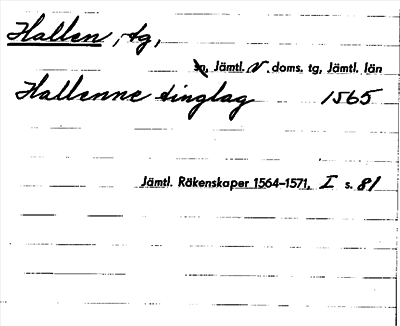 Hallen, tg,
sn, Jämtl. V. doms. tg, Jämtl. län
Hallenne tinglag 1565
Jämtl. Räkenskaper 1564–1571, I s. 81